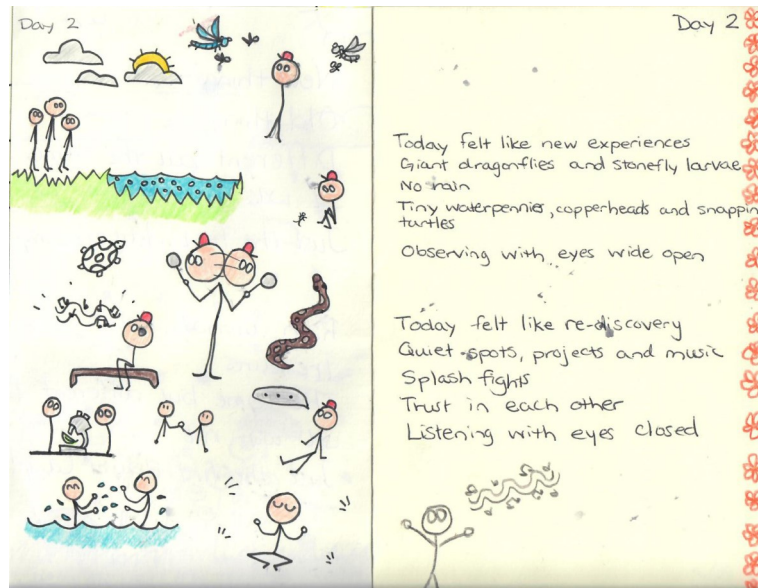 Day 2
Day 2
Today felt like new experiences
Giant dragonflies and stonefly larvae
No rain
Tiny waterpennies, copperheads and snappin
turtles
Observing with eyes wide open
Today felt like re-discovery
Quiet spots, projects and music
Splash fights
Trust in each other
Listening with eyes closed